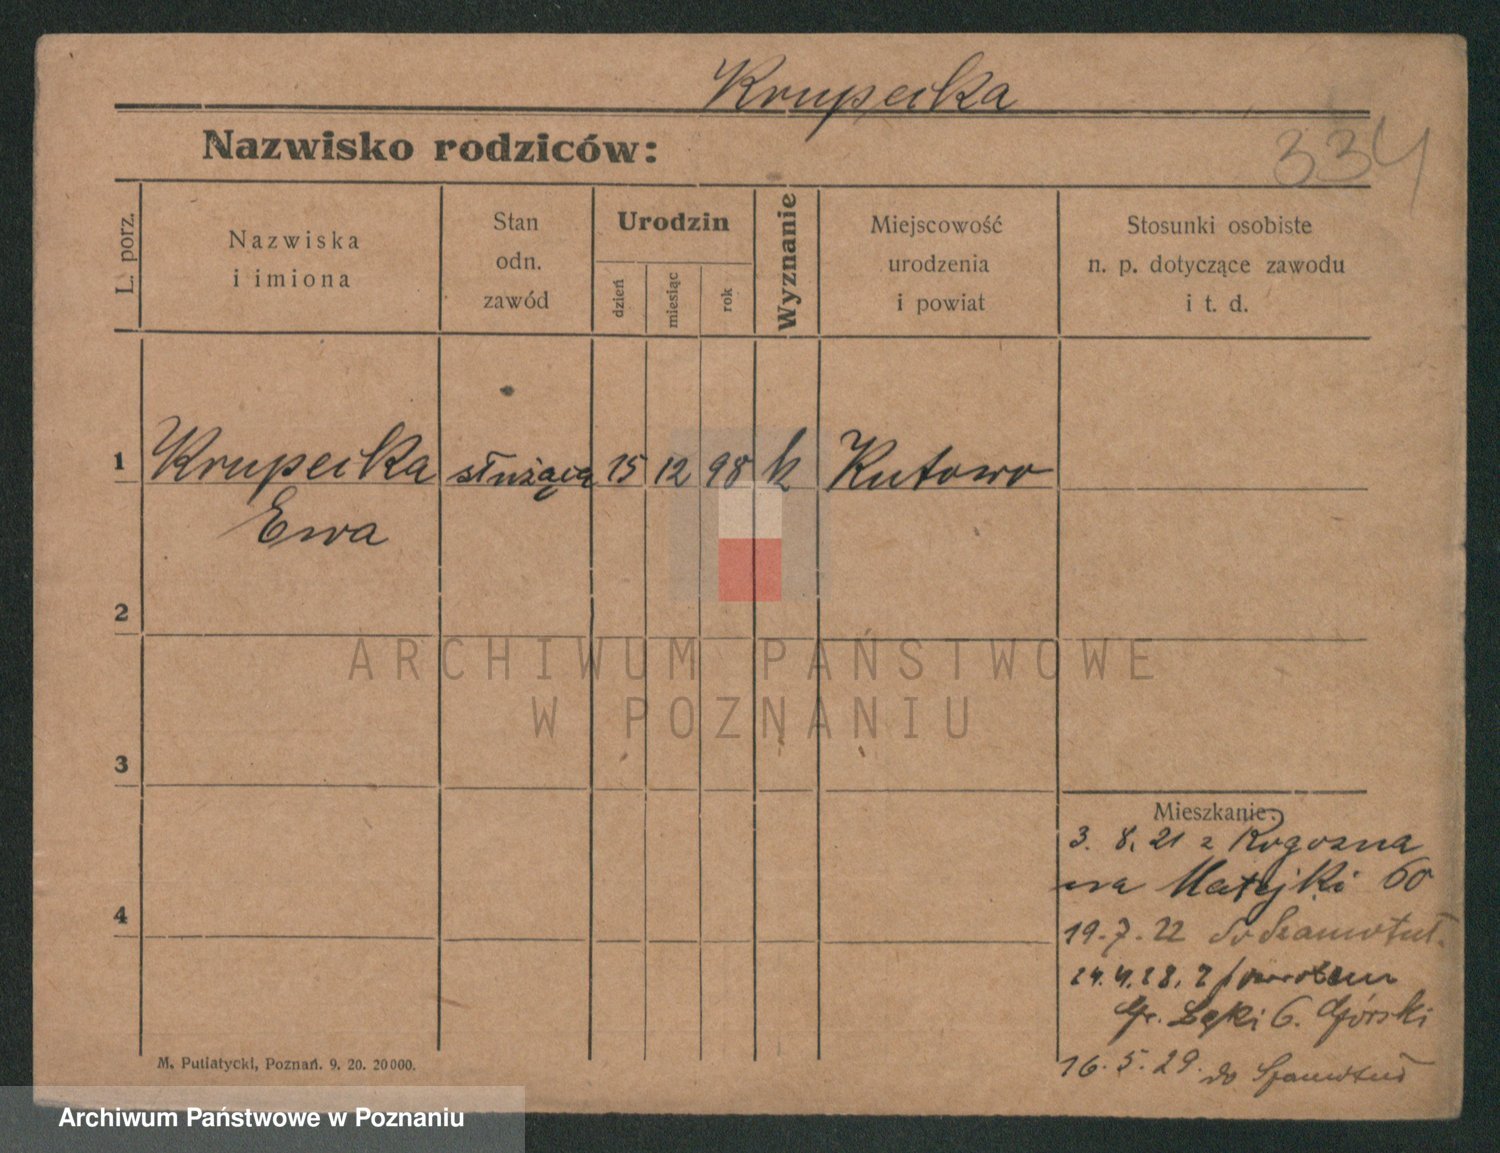 Krupecka
334
Nazwisko rodziców:
L. porz.
Nazwiska
i imiona
Stan
odn.
zawód
Urodzin
dzień
miesiąc
rok
Wyznanie
Miejscowość
urodzenia
i powiat
Stosunki osobiste
n. p. dotyczące zawodu
i t. d.
1 Krupecka służąca 15 12 98 k Kutowo
Ewa
2
3
4
Mieszkanie:
3. 8. 21 z Rogozna
na Matejki 60
19.7.22 do Szamotuł.
24.4.28. z
Gr. Łąki 6. Górski
16.5.29. do Szamotuł
M. Putiatycki, Poznań. 9. 20. 20000.
ARCHIWUM PAŃSTWOWE
W POZNANIU
Archiwum Państwowe w Poznaniu